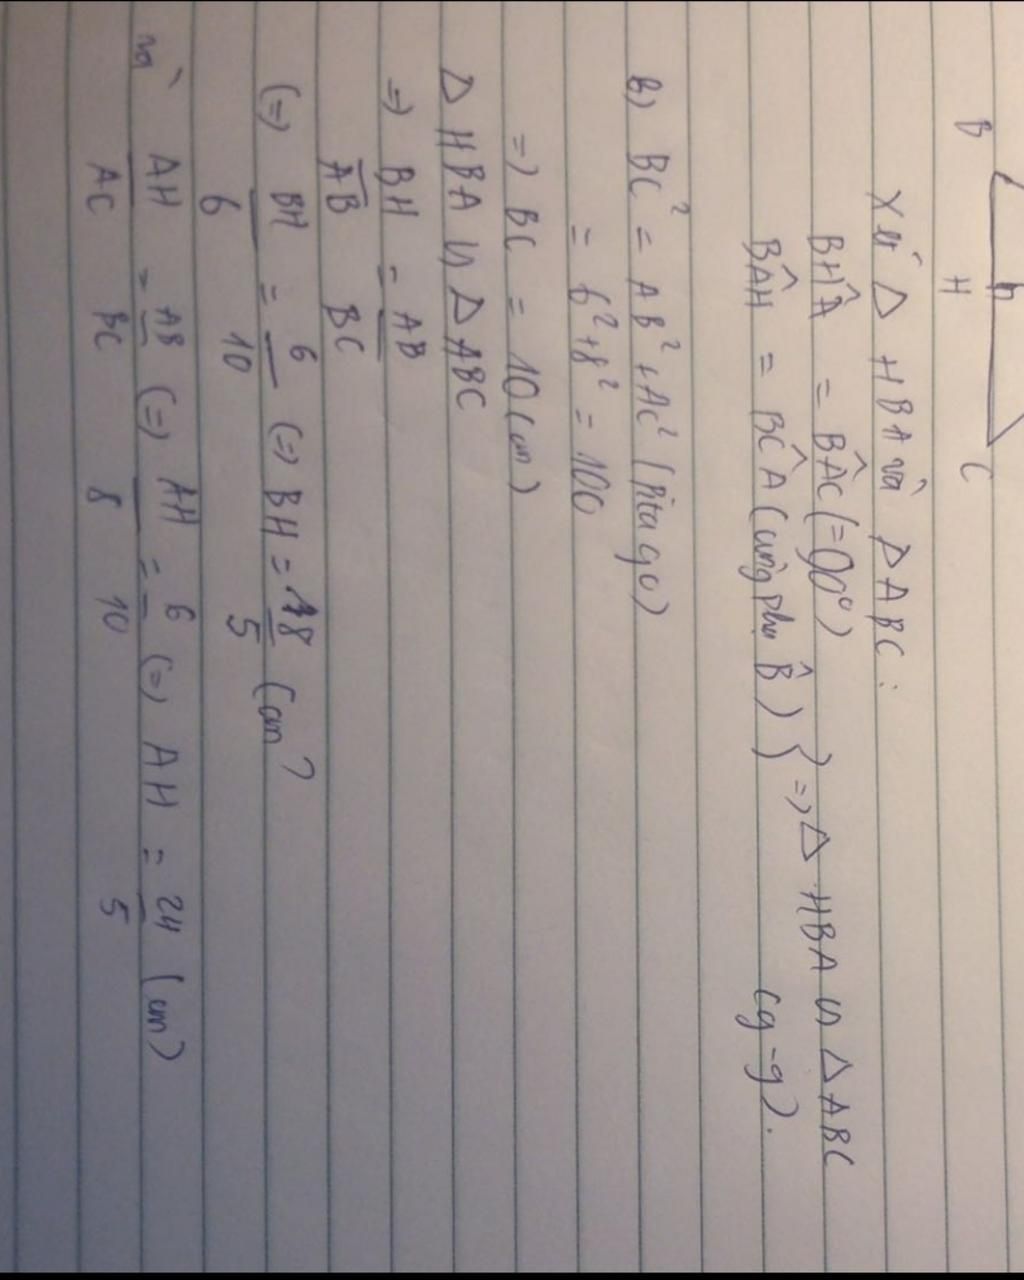 B H C
Xét Δ HBA và ΔABC :
BĤA = BÂC (=90°)
BÂH = BĈA (cùng phụ B̂) } => Δ HBA ᔕ Δ ABC
(g-g).
b) BC² = AB² + AC² (Pitago)
= 6² + 8² = 100
=> BC = 10 (cm)
Δ HBA ᔕ Δ ABC
=> BH/AB = AB/BC
(=) BH/6 = 6/10 (=) BH = 18/5 (cm)
và AH/AC = AB/BC (=) AH/8 = 6/10 (=) AH = 24/5 (cm)